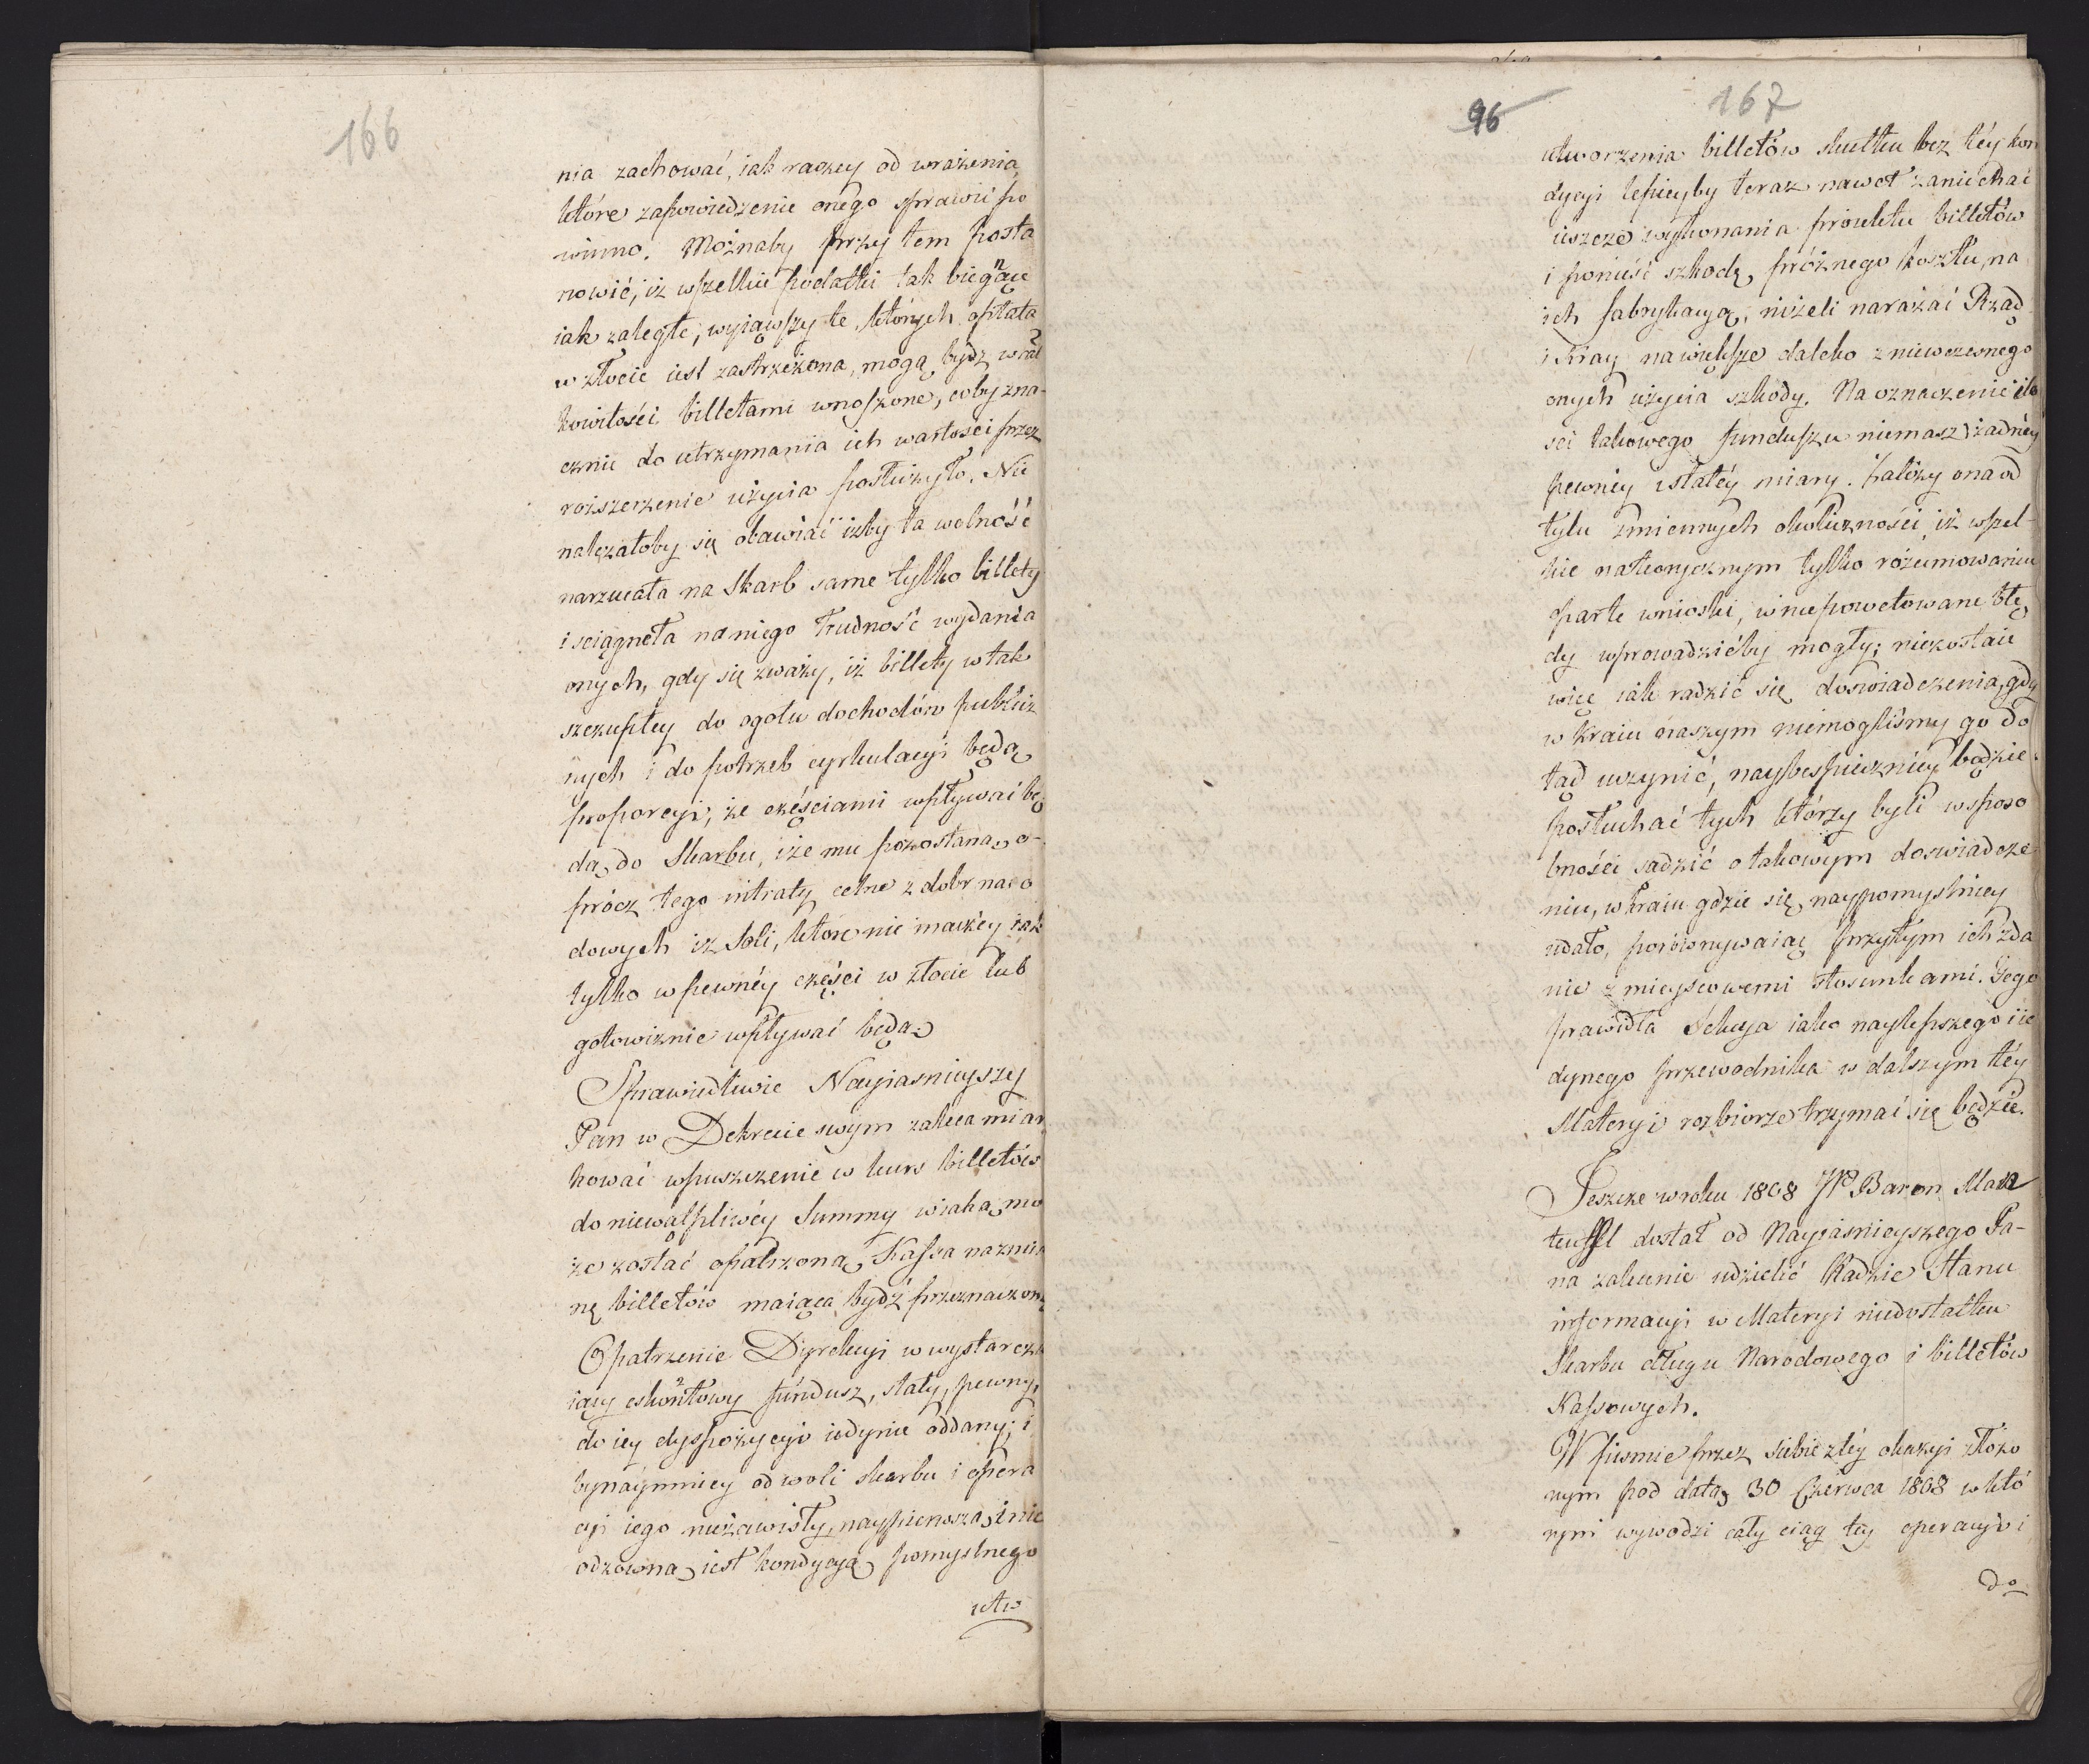 166
nia zachować, iak raczey od wrażenia
które zapowiedzenie onego sprawić po
winno. Możnaby przy tem posta
nowić, iż wszelkie podatki tak bieg̃ące
iak zaległe, wyiąwszy te, których opłata
w złocie iest zastrzeżona, mogą bydź w cał
kowitości billetami wnoszone, coby zna-
cznie do utrzymania ich wartości przez
rozszerzenie użycia posłużyło. Nie
należałoby się obawiać iżby ta wolność
narzucała na Skarb same tylko billety
i sciągneła na niego trudność wydania
onych, gdy się zważy, iż billety w tak
szczupłey do ogołu dochodów publicz
nych i do potrzeb cyrkulacyi będą
proporcyi, że częściami wpływać bę
dą do Skarbu, i że mu pozostaną o-
prócz tego intraty celne z dobr naro
dowych i z Soli, które nie inaczéy iak
tylko w pewnéy części w złocie lub
gotowiznie wpływać będą.
Sprawiedliwie Nayiasnieyszy
Pan w Dekrecie swym zaleca miar
kować wpuszczenie w kurs billetów
do niewątpliwéy Summy w iaką mo
że zostać opatrzoną Kassa na zmia
nę billetów maiąca bydź przeznaczoną
Opatrzenie Dyrekcyi w wystarcza
iący eskontowy fundusz, stały, pewny,
do iey dyspozycyi iedynie oddany; i
bynaymniey od woli skarbu i opera
cyi iego niezawisły, naypierwszą i nie
odzowną iest kondycyą pomyslnego
utw
96
167
utworzenia billetów skutku bez téy kon
dycyi lepieyby teraz nawet zaniechać
ieszcze wykonania proiektu billetów
i ponieść szkodę, próżnego kosztu, na
ich fabrykacyą, niżeli narażać Rząd
i Kray na większe daleko z niewczesnego
onych użycia szkody. Na oznaczenie ilo
sci takowego funduszu niemasz żadnéy
pewnéy i stałéy miary. Zależy ona od
tylu zmiennych okoliczności, iż wszel-
kie na teorycznym tylko rozumowaniu
oparte wnioski, w niepowetowane błę
dy wprowadzićby mogły; niezostaie
więc iak radzić się doswiadczenia, gdy
w kraiu naszym niemogliśmy go do
tąd uczynić, naybespieczniéy będzie
posłuchać tych którzy byli w sposo
bności sądzić o takowym doswiadcze
niu, w kraiu gdzie się naypomyslniey
udało, porównywaiąc przytym ich zda
nie z mieyscowemi stosunkami. Tego
prawidła Sekcya iako naylepszego i ie
dynego przewodnika w dalszym téy
Materyi rozbiorze trzymać się będzie.
Jeszcze w roku 1808 JP. Baron Man
teuffel dostał od Nayiasnieyszego Pa-
na zlecenie udzielić Radzie Stanu
informacyi w Materyi niedostatku
Skarbu długu Narodowego i billetów
Kassowych.
W pismie przez siebie z téy okazyi złożo
nym pod datą 30 Czerwca 1808 w któ
rym wywodzi cały ciąg tey operacyi i
do